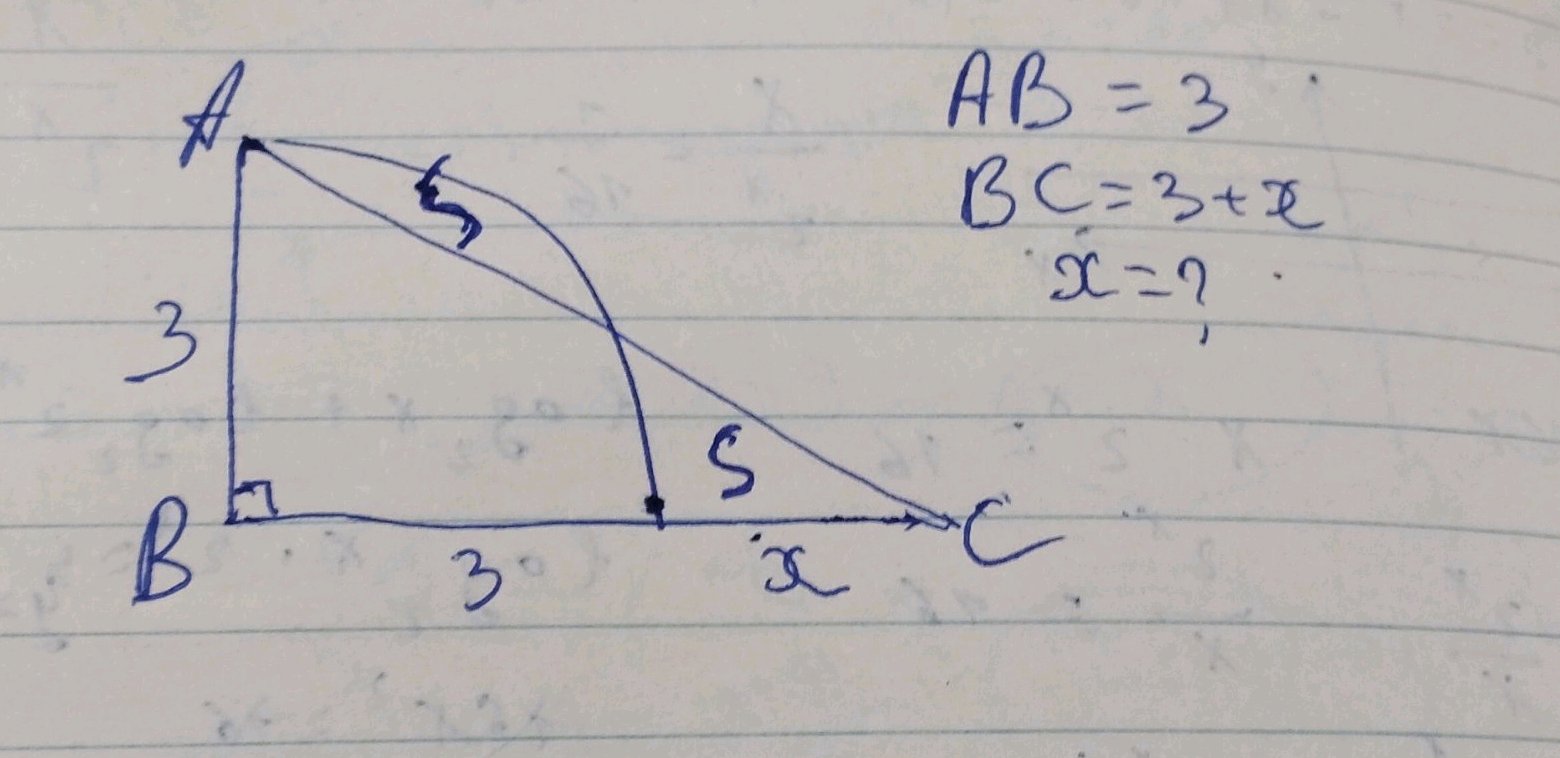 A
AB = 3
S
BC = 3 + x
x = ?
3
S
B
C
3
x